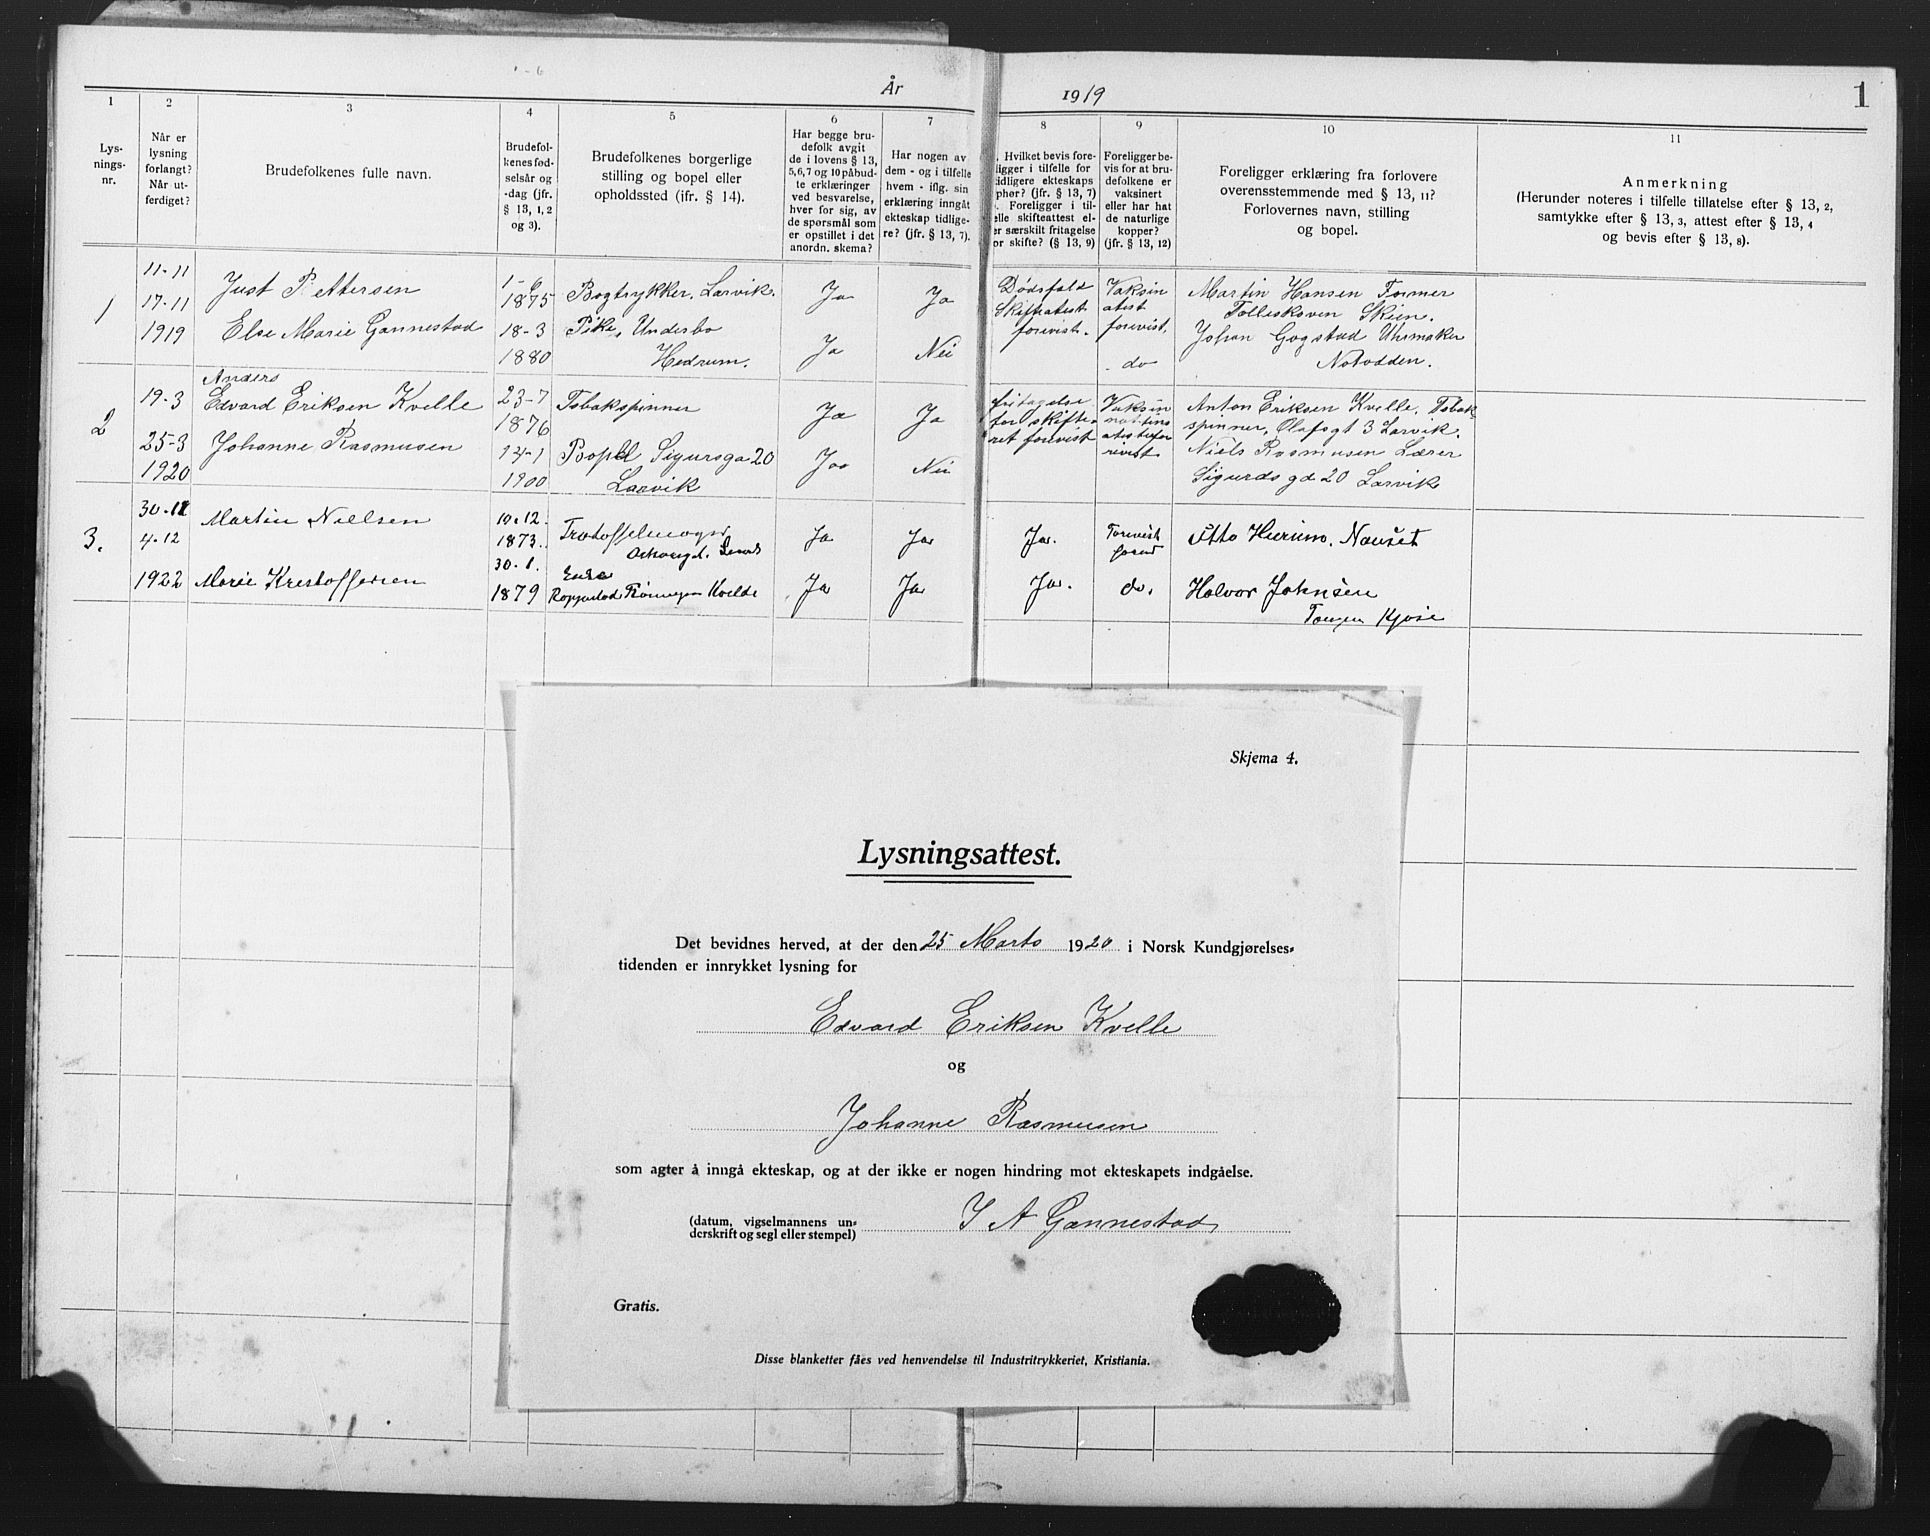 År
1919
1
1 2 3 4 5 6 7 8 9 10 11
Lys-
nings-
nr.
Når er
lysning
forlangt?
Når ut-
ferdiget?
Brudefolkenes fulle navn.
Brudefol-
kenes fød-
selsår og
-dag (jfr.
§ 13, 1, 2
og 3).
Brudefolkenes borgerlige
stilling og bopel eller
opholdssted (ifr. § 14).
Har begge bru-
defolk avgit
de i lovens § 13,
5, 6, 7 og 10 påbud-
te erklæringer
ved besvarelse,
hver for sig, av
de spørsmål som
er opstillet i det
anordn. skema?
Har nogen av
dem - og i tilfelle
hvem - iflg. sin
erklæring inngåt
ekteskap tidlige-
re? (jfr. § 13, 7).
. Hvilket bevis fore-
ligger i tilfelle for
tidligere ekteskaps
ophør? (jfr. § 13, 7)
. Foreligger i til-
elle skifteattest el-
er særskilt fritagelse
or skifte? (§ 13, 9)
Foreligger be-
vis for at bru-
defolkene er
vaksinert
eller har hat
de naturlige
kopper?
(jfr. § 13, 12)
Foreligger erklæring fra forlovere
overensstemmende med § 13, 11?
Forlovernes navn, stilling
og bopel.
Anmerkning
(Herunder noteres i tilfelle tillatelse efter § 13, 2,
samtykke efter § 13, 3, attest efter § 13, 4
og bevis efter § 13, 8).
1
11-11
17-11
1919
Just Pettersen
Else Marie Gannestad
1-6
1875
18-3
1880
Bogtrykker, Larvik.
Pike, Underbo
Hedrum.
Ja
Ja
Ja
Nei
Dødsfald
Skifteatest
forevist.
Vaksin
atest
forevist.
do
Martin Hansen Former
Folleskoven Skien.
Johan Gogstad Uhrmaker
Notodden.
2
19-3
25-3
1920
Anders
Edvard Eriksen Kvelle
Johanne Rasmusen
23-7
1876
14-1
1900
Tobakspinner
Bopel Sigursga 20
Larvik
Ja
Jaa
Ja
Nei
fritagelse
for skifte
ret forevist
Vaksin
atest for
evist
Anton Eriksen Kvelle, Tobak
spinner, Olafsgt 3 Larvik.
Niels Rasmusen Lærer
Sigurds gd 20 Larvik
3.
30-11
4-12
1922
Martin Nielsen
Marie Kristoffersen
10.12.
1873.
30.1.
1879
Enke
Kvelde
Ja
Ja
Ja
Ja
Ja.
Ja.
Forevist
do.
Otto Hierinn. Nauset
Halvor Johnsen
Kjose
Skjema 4.
Lysningsattest.
Det bevidnes herved, at der den 25 Marts 1920 i Norsk Kundgjørelses-
tidenden er innrykket lysning for
Edvard Eriksen Kvelle
og
Johanne Rasmusen
som agter å inngå ekteskap, og at der ikke er nogen hindring mot ekteskapets indgåelse.
(datum, vigselmannens un-
derskrift og segl eller stempel)
J A Gannestad
Gratis.
Disse blanketter fåes ved henvendelse til Industritrykkeriet, Kristiania.